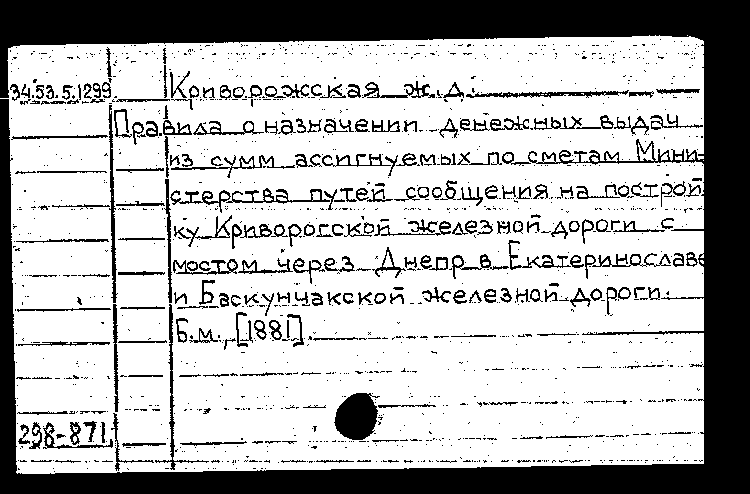 34.53.5.1299. Криворожская ж.д.
Правила о назначении денежных выдач
из сумм ассигнуемых по сметам Мини-
стерства путей сообщения на построй
ку Криворогской железной дороги с
мостом через Днепр в Екатеринославе
и Баскунчакской железной дороги.
Б.м., [1881].
298-871